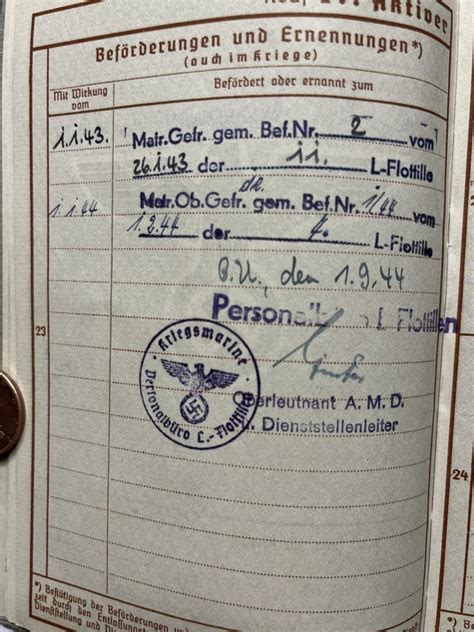 Aktiver
Beförderungen und Ernennungen*)
(auch im Kriege)
Mit Wirkung vom
Befördert oder ernannt zum
1.1.43. Matr.Gefr. gem. Bef.Nr. 2 vom
26.1.43 der 11. L-Flottille
1.1.44 Matr.Ob.Gefr. gem. Bef.Nr. 1/44 vom
1.2.44 der 4. L-Flottille
O.U., den 1.9.44
Personalbüro L-Flottillen
Oberleutnant A. M. D.
u. Dienststellenleiter
Kriegsmarine
Personalbüro L.-Flottillen
23
24
*) Bestätigung der Beförderungen
zeit durch den Entlassungs
Dienststellung und Di